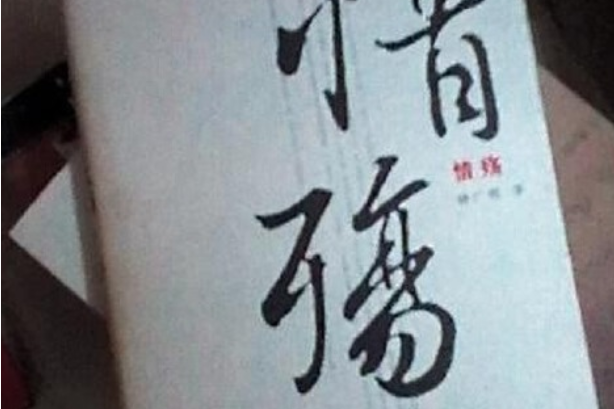 情
殇
情殇
著